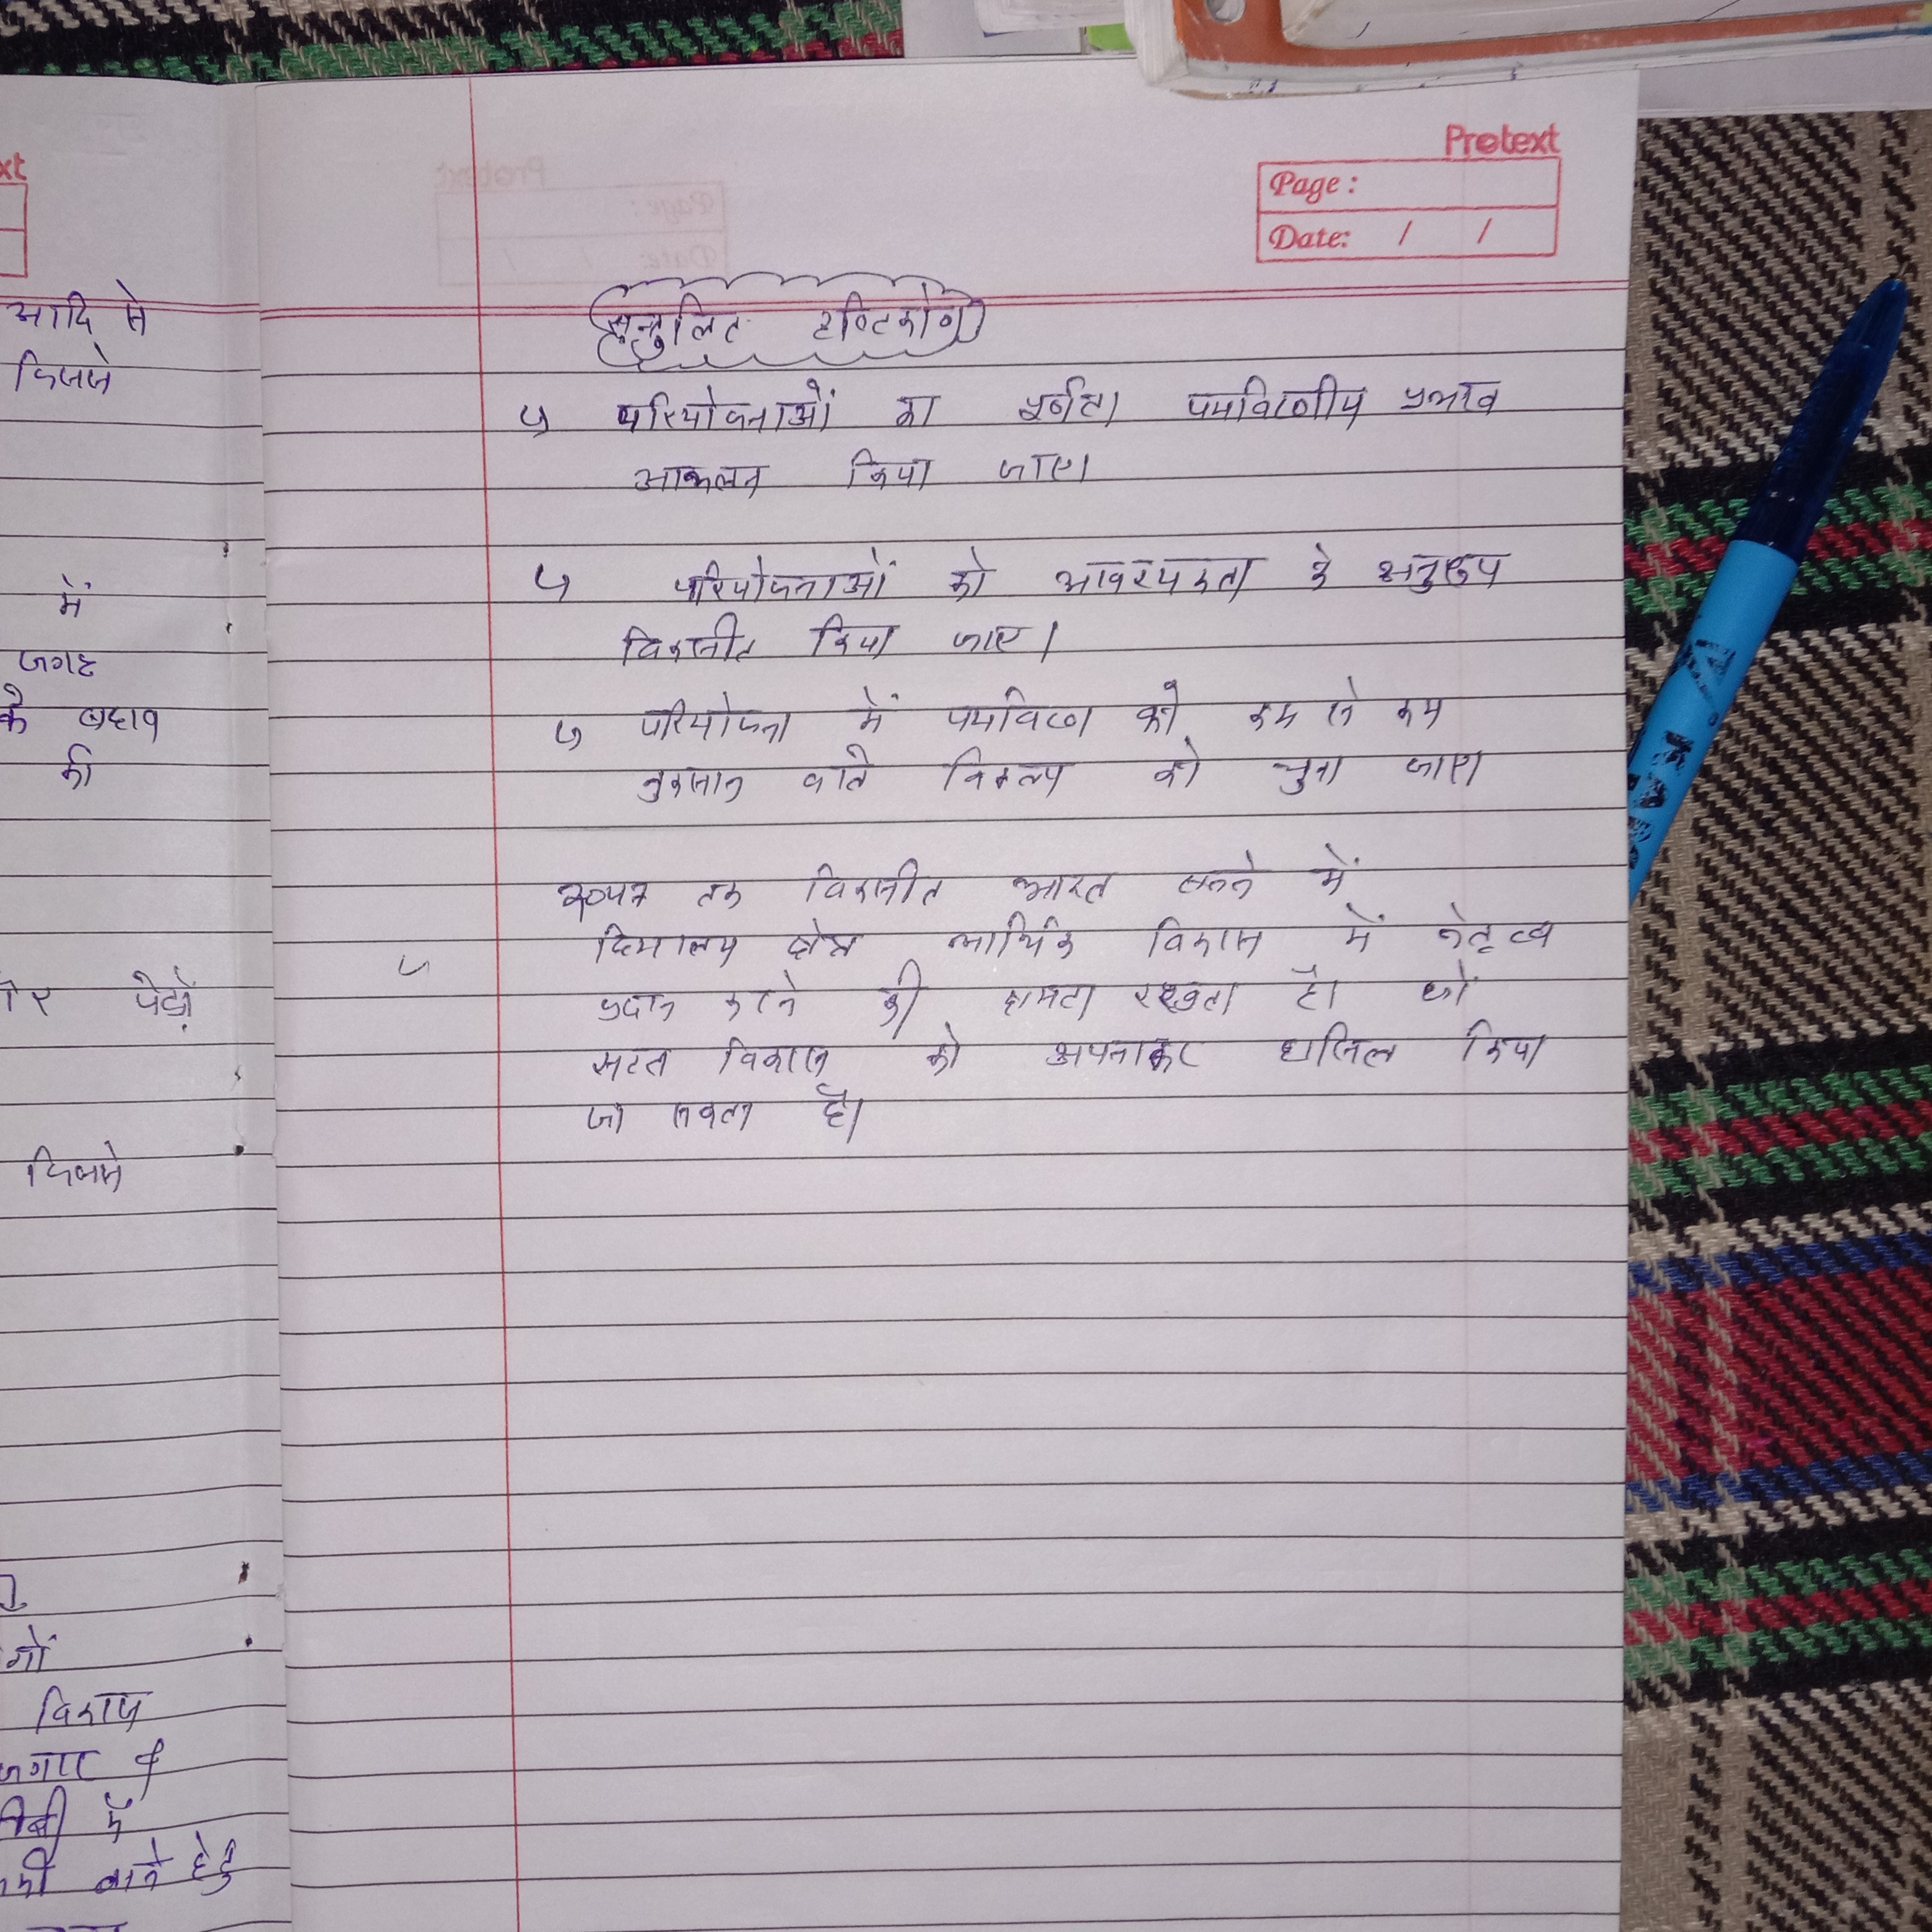 Protext
Page :
Date: / /
सन्तुलित दृष्टिकोण
परियोजनाओं का पूर्णतः पर्यावरणीय प्रभाव
आकलन किया जाए।
परियोजनाओं को आवश्यकता के अनुरूप
विकसीत किया जाए।
परियोजना में पर्यावरण को कम से कम
नुकसान वाले विकल्प को चुना जाए।
तक विकसीत भारत बनने में
हिमालय क्षेत्र आर्थिक विकास में नेतृत्व
प्रदान करने की क्षमता रखता है। जो
सतत विकास को अपनाकर हासिल किया
जा सकता है।
आदि से
जिससे
में
जगह
के बहाव
की
पेड़ों
जिससे
विकास
में
हेतु